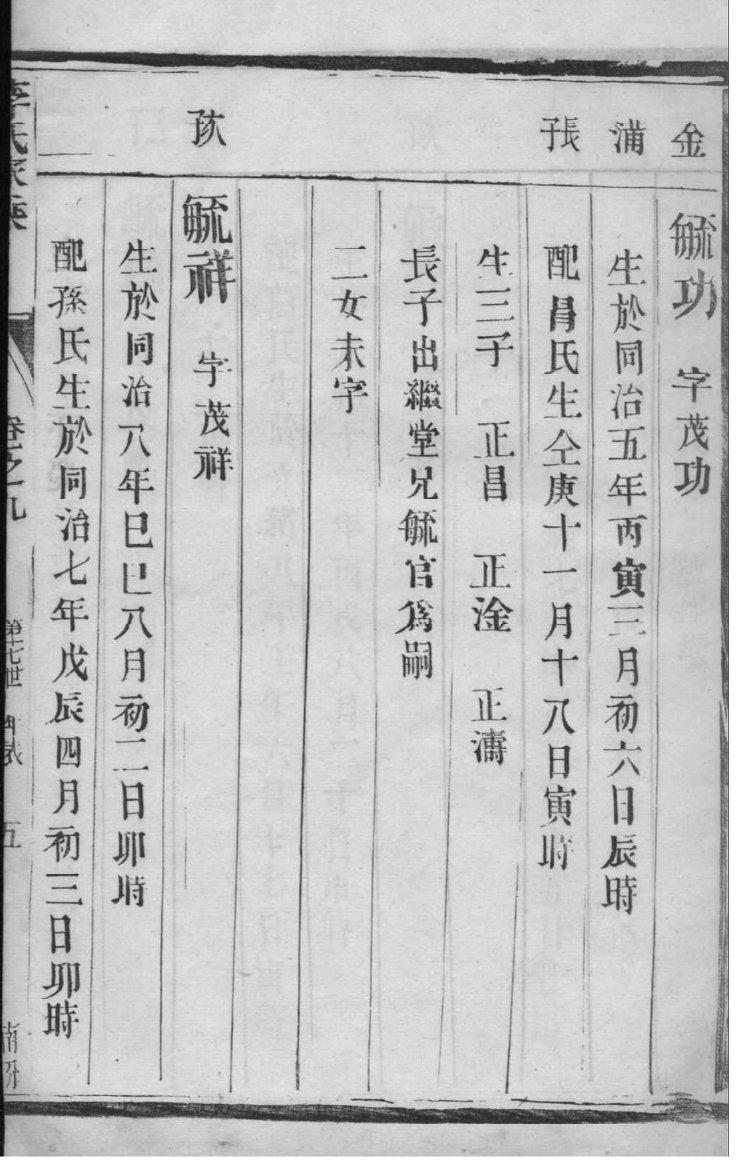 金浦長子
毓功　字茂功
生於同治五年丙寅三月初六日辰時
配昌氏生仝庚十一月十八日寅時
生三子　正昌　正淦　正濤
長子出繼堂兄毓官爲嗣
二女未字
次子
毓祥　字茂祥
生於同治八年巳巳八月初二日卯時
配孫氏生於同治七年戊辰四月初三日卯時
李氏家乘
卷之九
五